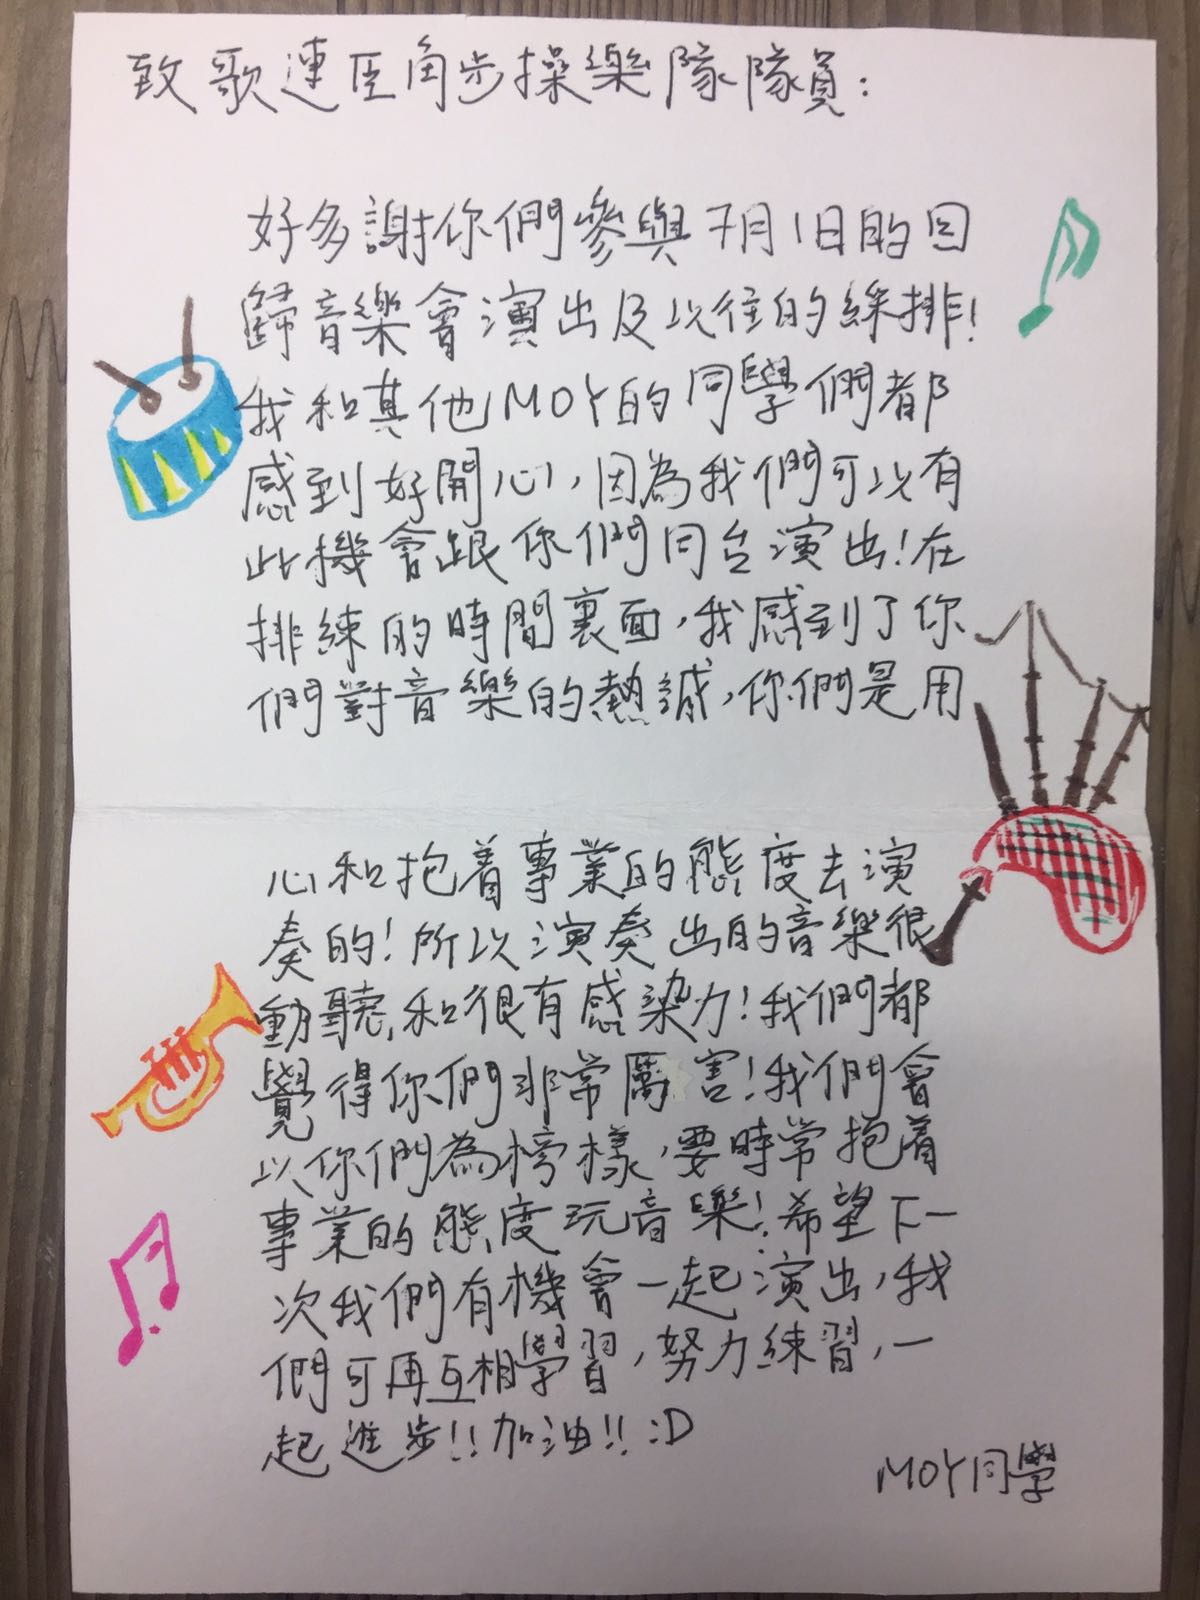 致歌連臣角步操樂隊隊員：
好多謝你們參與7月1日的回
歸音樂會演出及以往的綵排！
我和其他MOY的同學們都
感到好開心，因為我們可以有
此機會跟你們同台演出！在
排練的時間裏面，我感到了你
們對音樂的熱誠，你們是用
心和抱着專業的態度去演
奏的！所以演奏出的音樂很
動聽，和很有感染力！我們都
覺得你們非常厲害！我們會
以你們為榜樣，要時常抱着
專業的態度玩音樂！希望下一
次我們有機會一起演出，我
們可再互相學習，努力練習，一
起進步！！加油！！:D
MOY同學